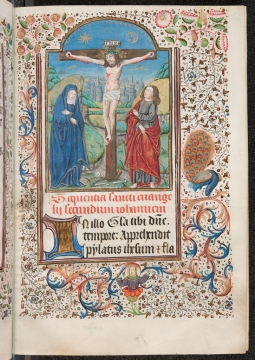 INRI
Sequentia sancti euange
lij secundum iohannem
In illo Gl'a tibi dn̄e
tempore: Apprehendit
pylatus ihesum ⁊ fla